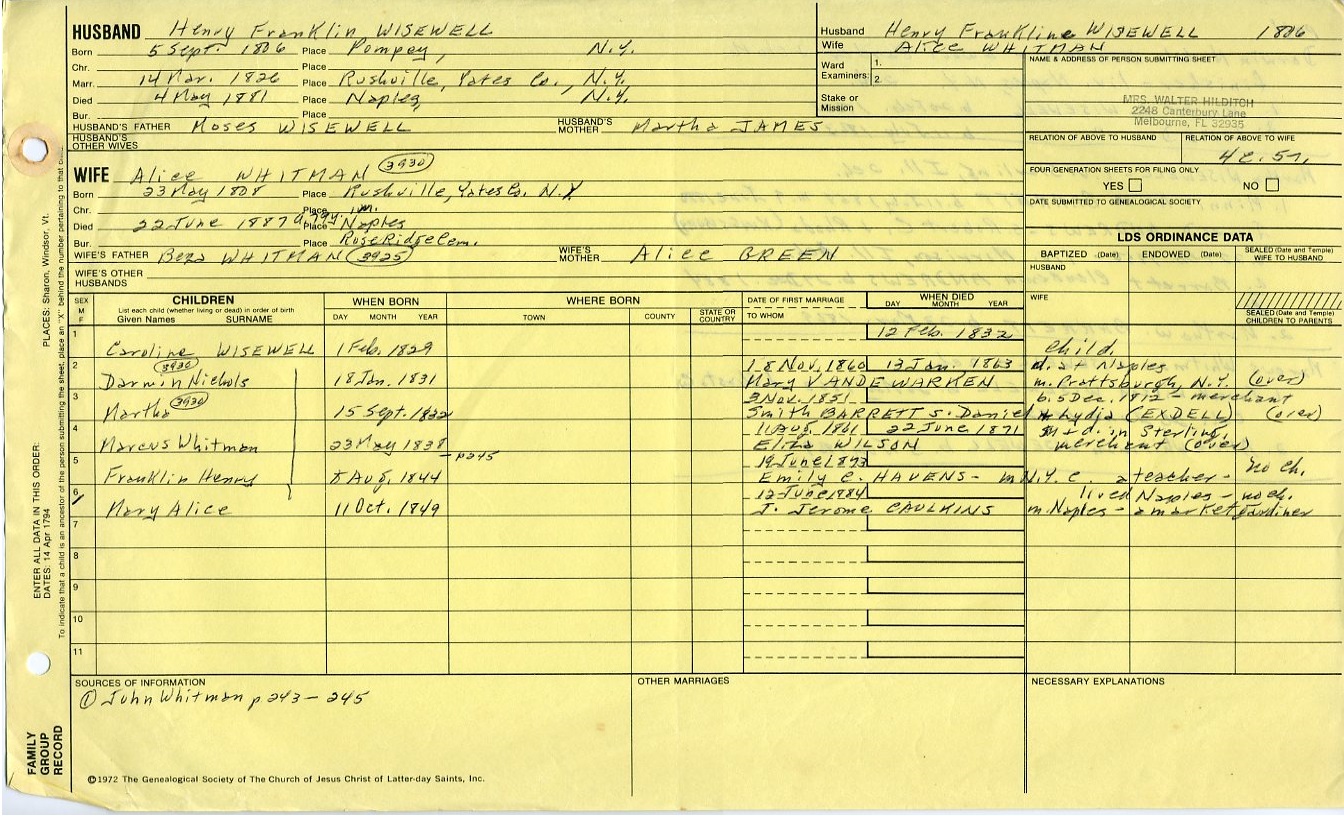 HUSBAND Henry Franklin WISEWELL
Born 5 Sept. 1806 Place Pompey, N.Y.
Chr. Place
Marr. 14 Mar. 1826 Place Rushville, Yates Co., N.Y.
Died 4 May 1881 Place Naples, N.Y.
Bur. Place
HUSBAND'S FATHER Moses WISEWELL HUSBAND'S MOTHER Martha JAMES
HUSBAND'S OTHER WIVES
Husband Henry Frankline WISEWELL 1806
Wife Alice WHITMAN
Ward Examiners: 1.
2.
Stake or Mission
NAME & ADDRESS OF PERSON SUBMITTING SHEET
MRS. WALTER HILDITCH
2248 Canterbury Lane
Melbourne, FL 32935
RELATION OF ABOVE TO HUSBAND RELATION OF ABOVE TO WIFE
FOUR GENERATION SHEETS FOR FILING ONLY
YES NO
DATE SUBMITTED TO GENEALOGICAL SOCIETY
WIFE Alice WHITMAN 3930
Born 23 May 1808 Place Rushville, Yates Co. N.Y.
Chr. Place
Died 22 June 1887 Place Naples
Bur. Place Rose Ridge Cem.
WIFE'S FATHER Beza WHITMAN 3925 WIFE'S MOTHER Alice GREEN
WIFE'S OTHER HUSBANDS
LDS ORDINANCE DATA
BAPTIZED (Date) ENDOWED (Date) SEALED (Date and Temple) WIFE TO HUSBAND
HUSBAND
WIFE
SEALED (Date and Temple) CHILDREN TO PARENTS
SEX M F CHILDREN WHEN BORN WHERE BORN DATE OF FIRST MARRIAGE WHEN DIED
List each child (whether living or dead) in order of birth
Given Names SURNAME DAY MONTH YEAR TOWN COUNTY STATE OR COUNTRY TO WHOM DAY MONTH YEAR
1 12 Feb. 1832
Caroline WISEWELL 1 Feb. 1829 child.
2 3930 18 Nov. 1860 13 Jan. 1863 d. at Naples
Darwin Nichols 18 Jan. 1831 Mary VANDEWARKEN m. Prattsburgh, N.Y. (over)
3 3930 3 Nov. 1851 b. 5 Dec. 1812 - merchant
Martha 15 Sept. 1832 Smith BARRETT s. Daniel & Lydia (EXDELL) (over)
4 11 Aug. 1861 22 June 1871 m & d. in Sterling,
Marcus Whitman 23 May 1838 Eliza WILSON merchant (over)
5 - p245 19 June 1873 no ch.
Franklin Henry 8 Aug. 1844 Emily C. HAVENS - m N.Y.C. a teacher -
6 12 June 1884 lived Naples - no ch.
Mary Alice 11 Oct. 1849 J. Jerome CAULKINS m. Naples - a market gardiner
7
8
9
10
11
SOURCES OF INFORMATION OTHER MARRIAGES NECESSARY EXPLANATIONS
① John Whitman p 243 - 245
©1972 The Genealogical Society of The Church of Jesus Christ of Latter-day Saints, Inc.
FAMILY GROUP RECORD
ENTER ALL DATA IN THIS ORDER:
DATES: 14 Apr 1794
PLACES: Sharon, Windsor, Vt.
To indicate that a child is an ancestor of the person submitting the sheet, place an "X" behind the number pertaining to that